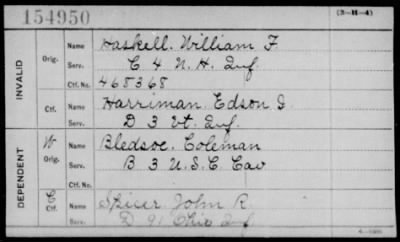 154950
(3-H-4)
INVALID
Orig.
Name
Haskell. William F.
Serv.
C 4 N. H. Inf.
Ctf. No.
465368
Ctf.
Name
Harriman. Edson G.
Serv.
D 3 Vt. Inf.
DEPENDENT
W
Orig.
Name
Bledsoe. Coleman
Serv.
B 3 U. S. C. Cav
Ctf. No.
C
Ctf.
Name
Spicer John R.
Serv.
D 91 Ohio Inf